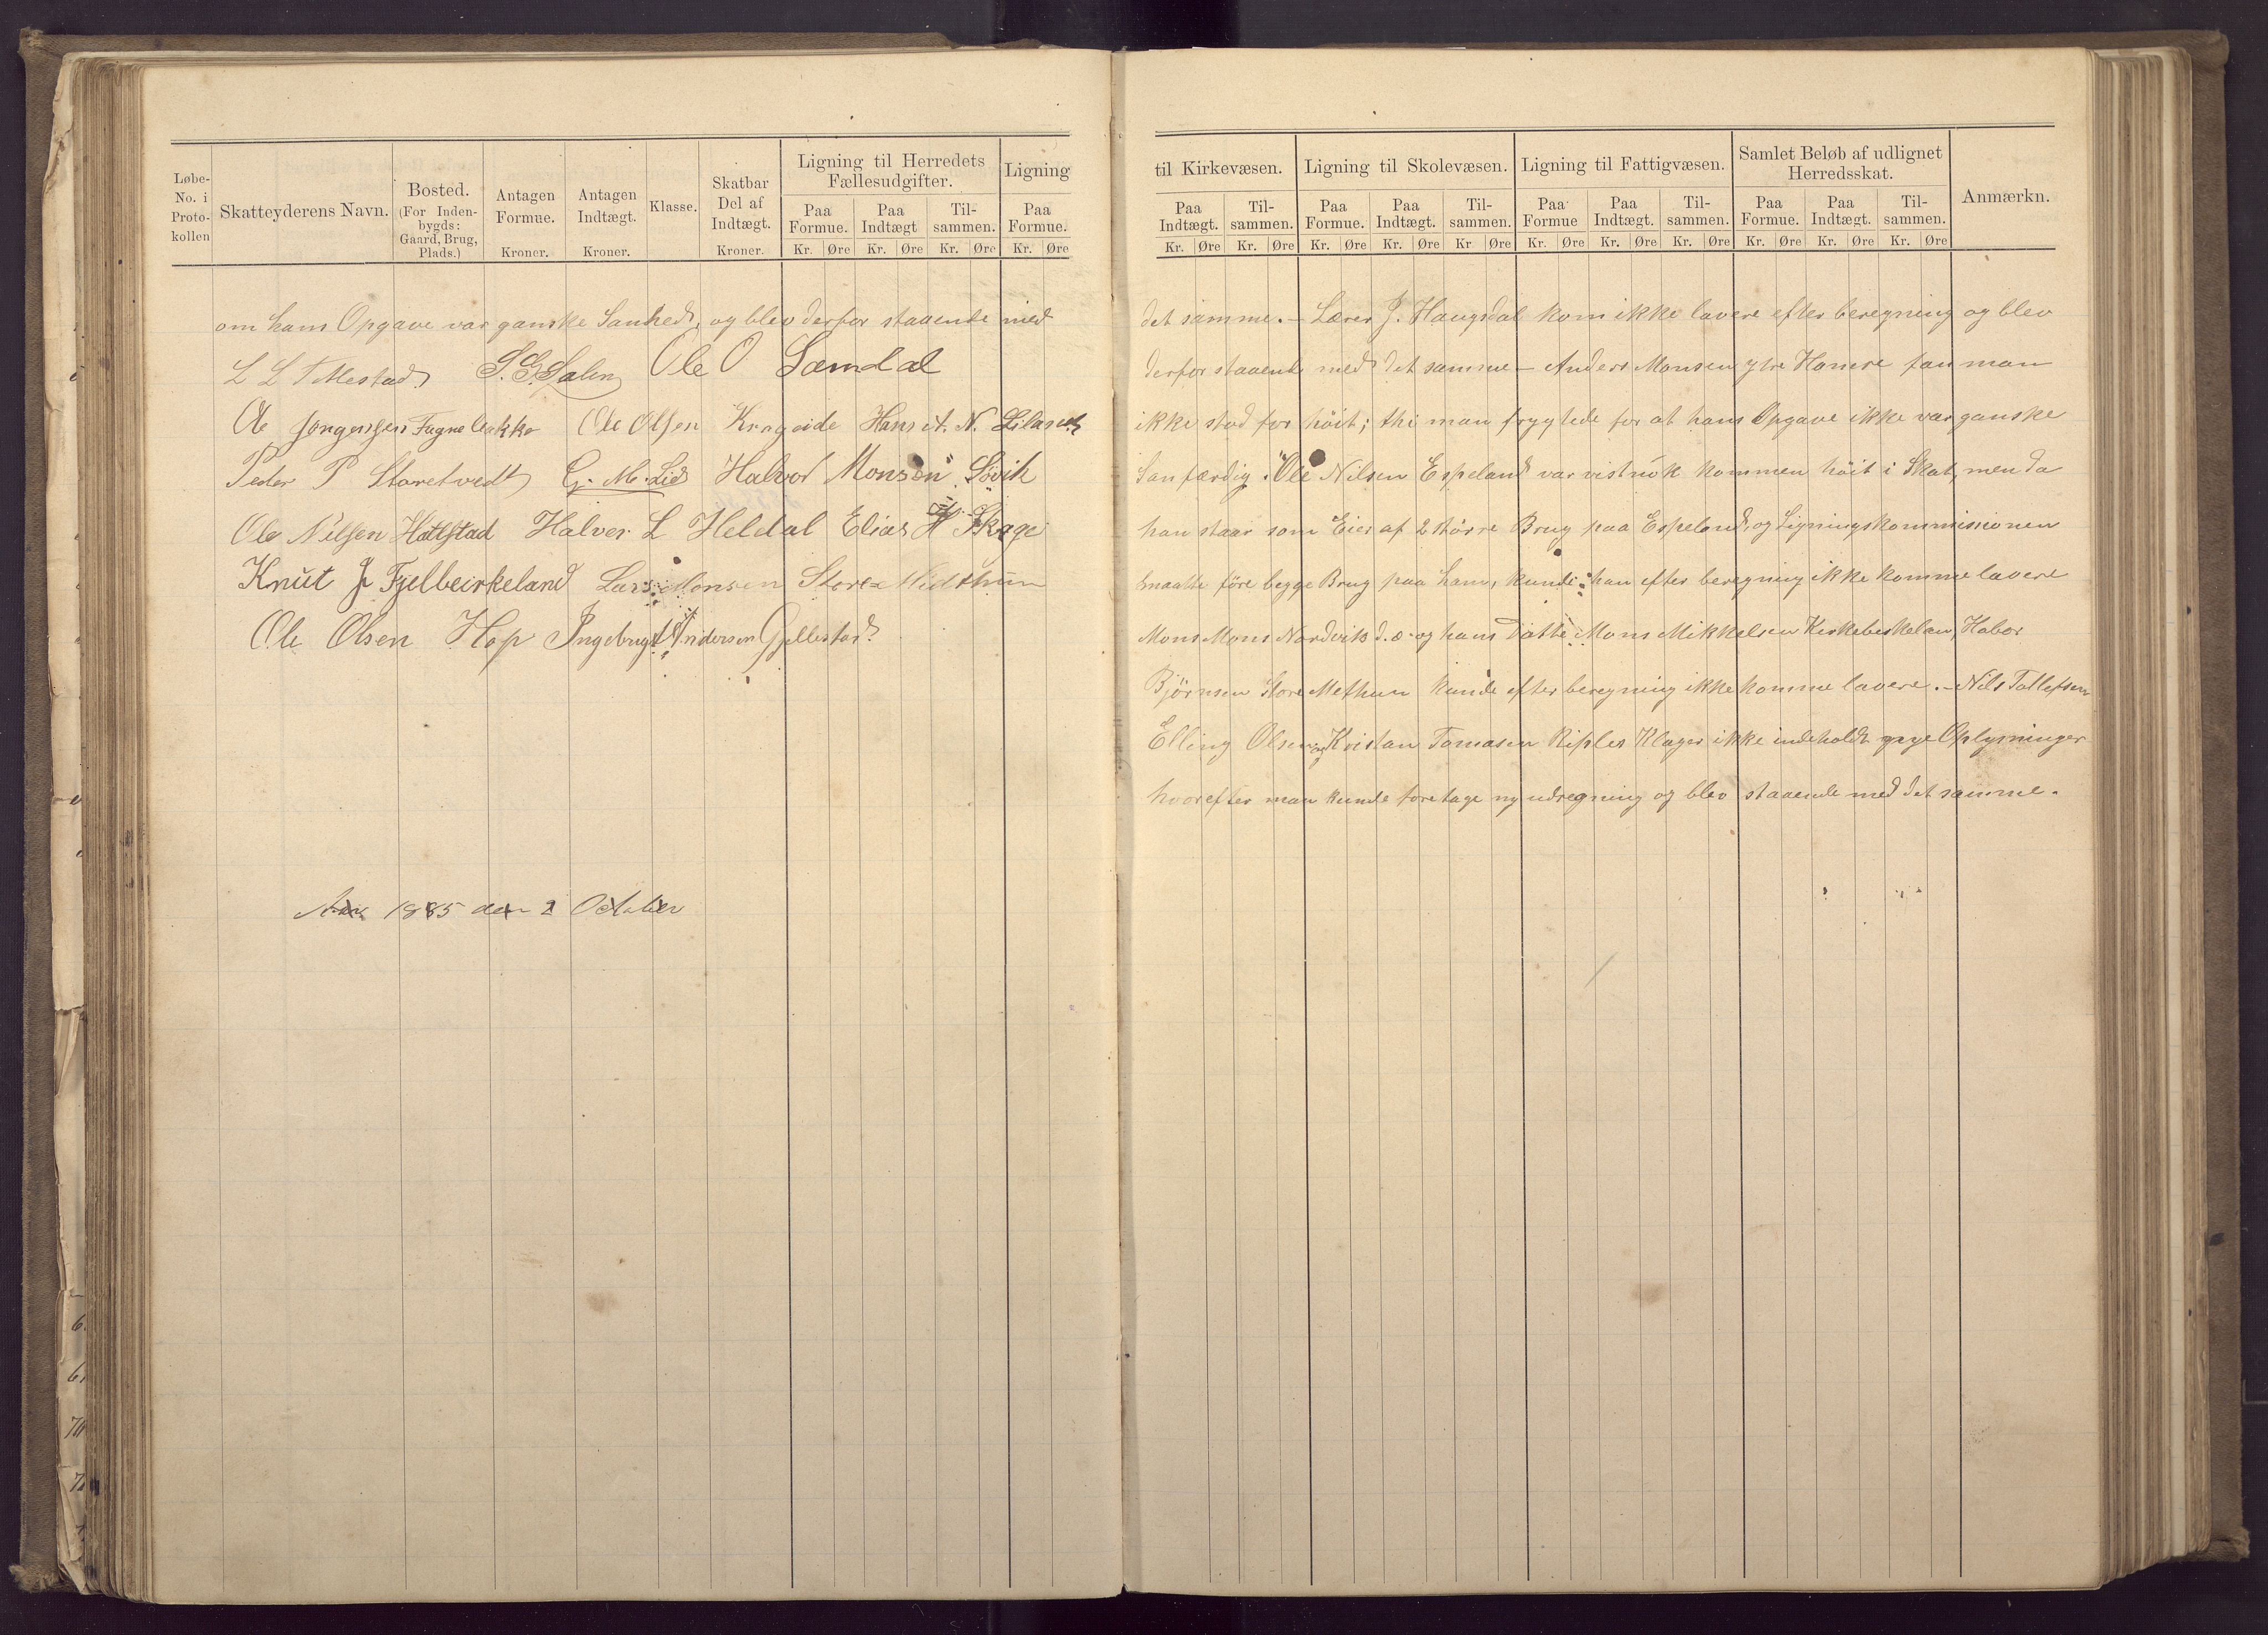 Løbe-
No. i
Proto-
kollen
Skatteyderens Navn.
Bosted.
(For Inden-
bygds:
Gaard, Brug,
Plads.)
Antagen
Formue.
Kroner.
Antagen
Indtægt.
Kroner.
Klasse.
Skatbar
Del af
Indtægt.
Kroner.
Ligning til Herredets
Fællesudgifter.
Paa
Formue.
Paa
Indtægt
Til-
sammen.
Kr. Øre Kr. Øre Kr. Øre
Ligning
Paa
Formue.
Kr. Øre
om hans Opgave var ganske Sanhed, og blev derfor staaende med
L L Mestad. Ole O Sæmdal
Ole Jørgensen Ole Olsen Krageide N.
Peder P Storetvedt G. M. Lid Halvor Monsen Søvik
Ole Nilsen Hattstad Halver L Heldal Elias H Skage
Knut J Fjelbeirkeland Lars Monsen Store Midthun
Ole Olsen Hop Ingebrigt Andersen Gjellestad
1885 den 2 October
til Kirkevæsen.
Paa
Indtægt.
Til-
sammen.
Kr. Øre Kr. Øre
Ligning til Skolevæsen.
Paa
Formue.
Paa
Indtægt.
Til-
sammen.
Kr. Øre Kr. Øre Kr Øre
Ligning til Fattigvæsen.
Paa
Formue
Paa
Indtægt.
Til-
sammen.
Kr. Øre Kr. Øre Kr. Øre
Samlet Beløb af udlignet
Herredsskat.
Paa
Formue.
Paa
Indtægt.
Til-
sammen.
Kr. Øre Kr. Øre Kr. Øre
Anmærkn.
det samme. – Lærer J. Haugsdal kom ikke lavere efter beregning og blev
derfor staaende med det samme – Anders Monsen ytre Hamre fan man
ikke stod for höit; thi man frygtede for at hans Opgave ikke var ganske
Sanfærdig. Ole Nilsen Espeland var vistnok kommen höit i Skat, men da
han staar som Eier af 2 större Brug paa Espeland, og Ligningskommissionen
maatte före begge Brug paa ham, kunde han efter beregning ikke komme lavere
Mons Mons Nordvik d. æ. og hans Mons Mikkelsen Kirkebirkelan, Habor
Björnsen Store Methun kunde efter beregning ikke komme lavere. – Nils Tollefsen
Elling Olsen og Kristan Tomasen Riples Klager ikke indeholdt nye Oplysninger
hvorefter man kunde foretage ny udregning og blev staaende med det samme.